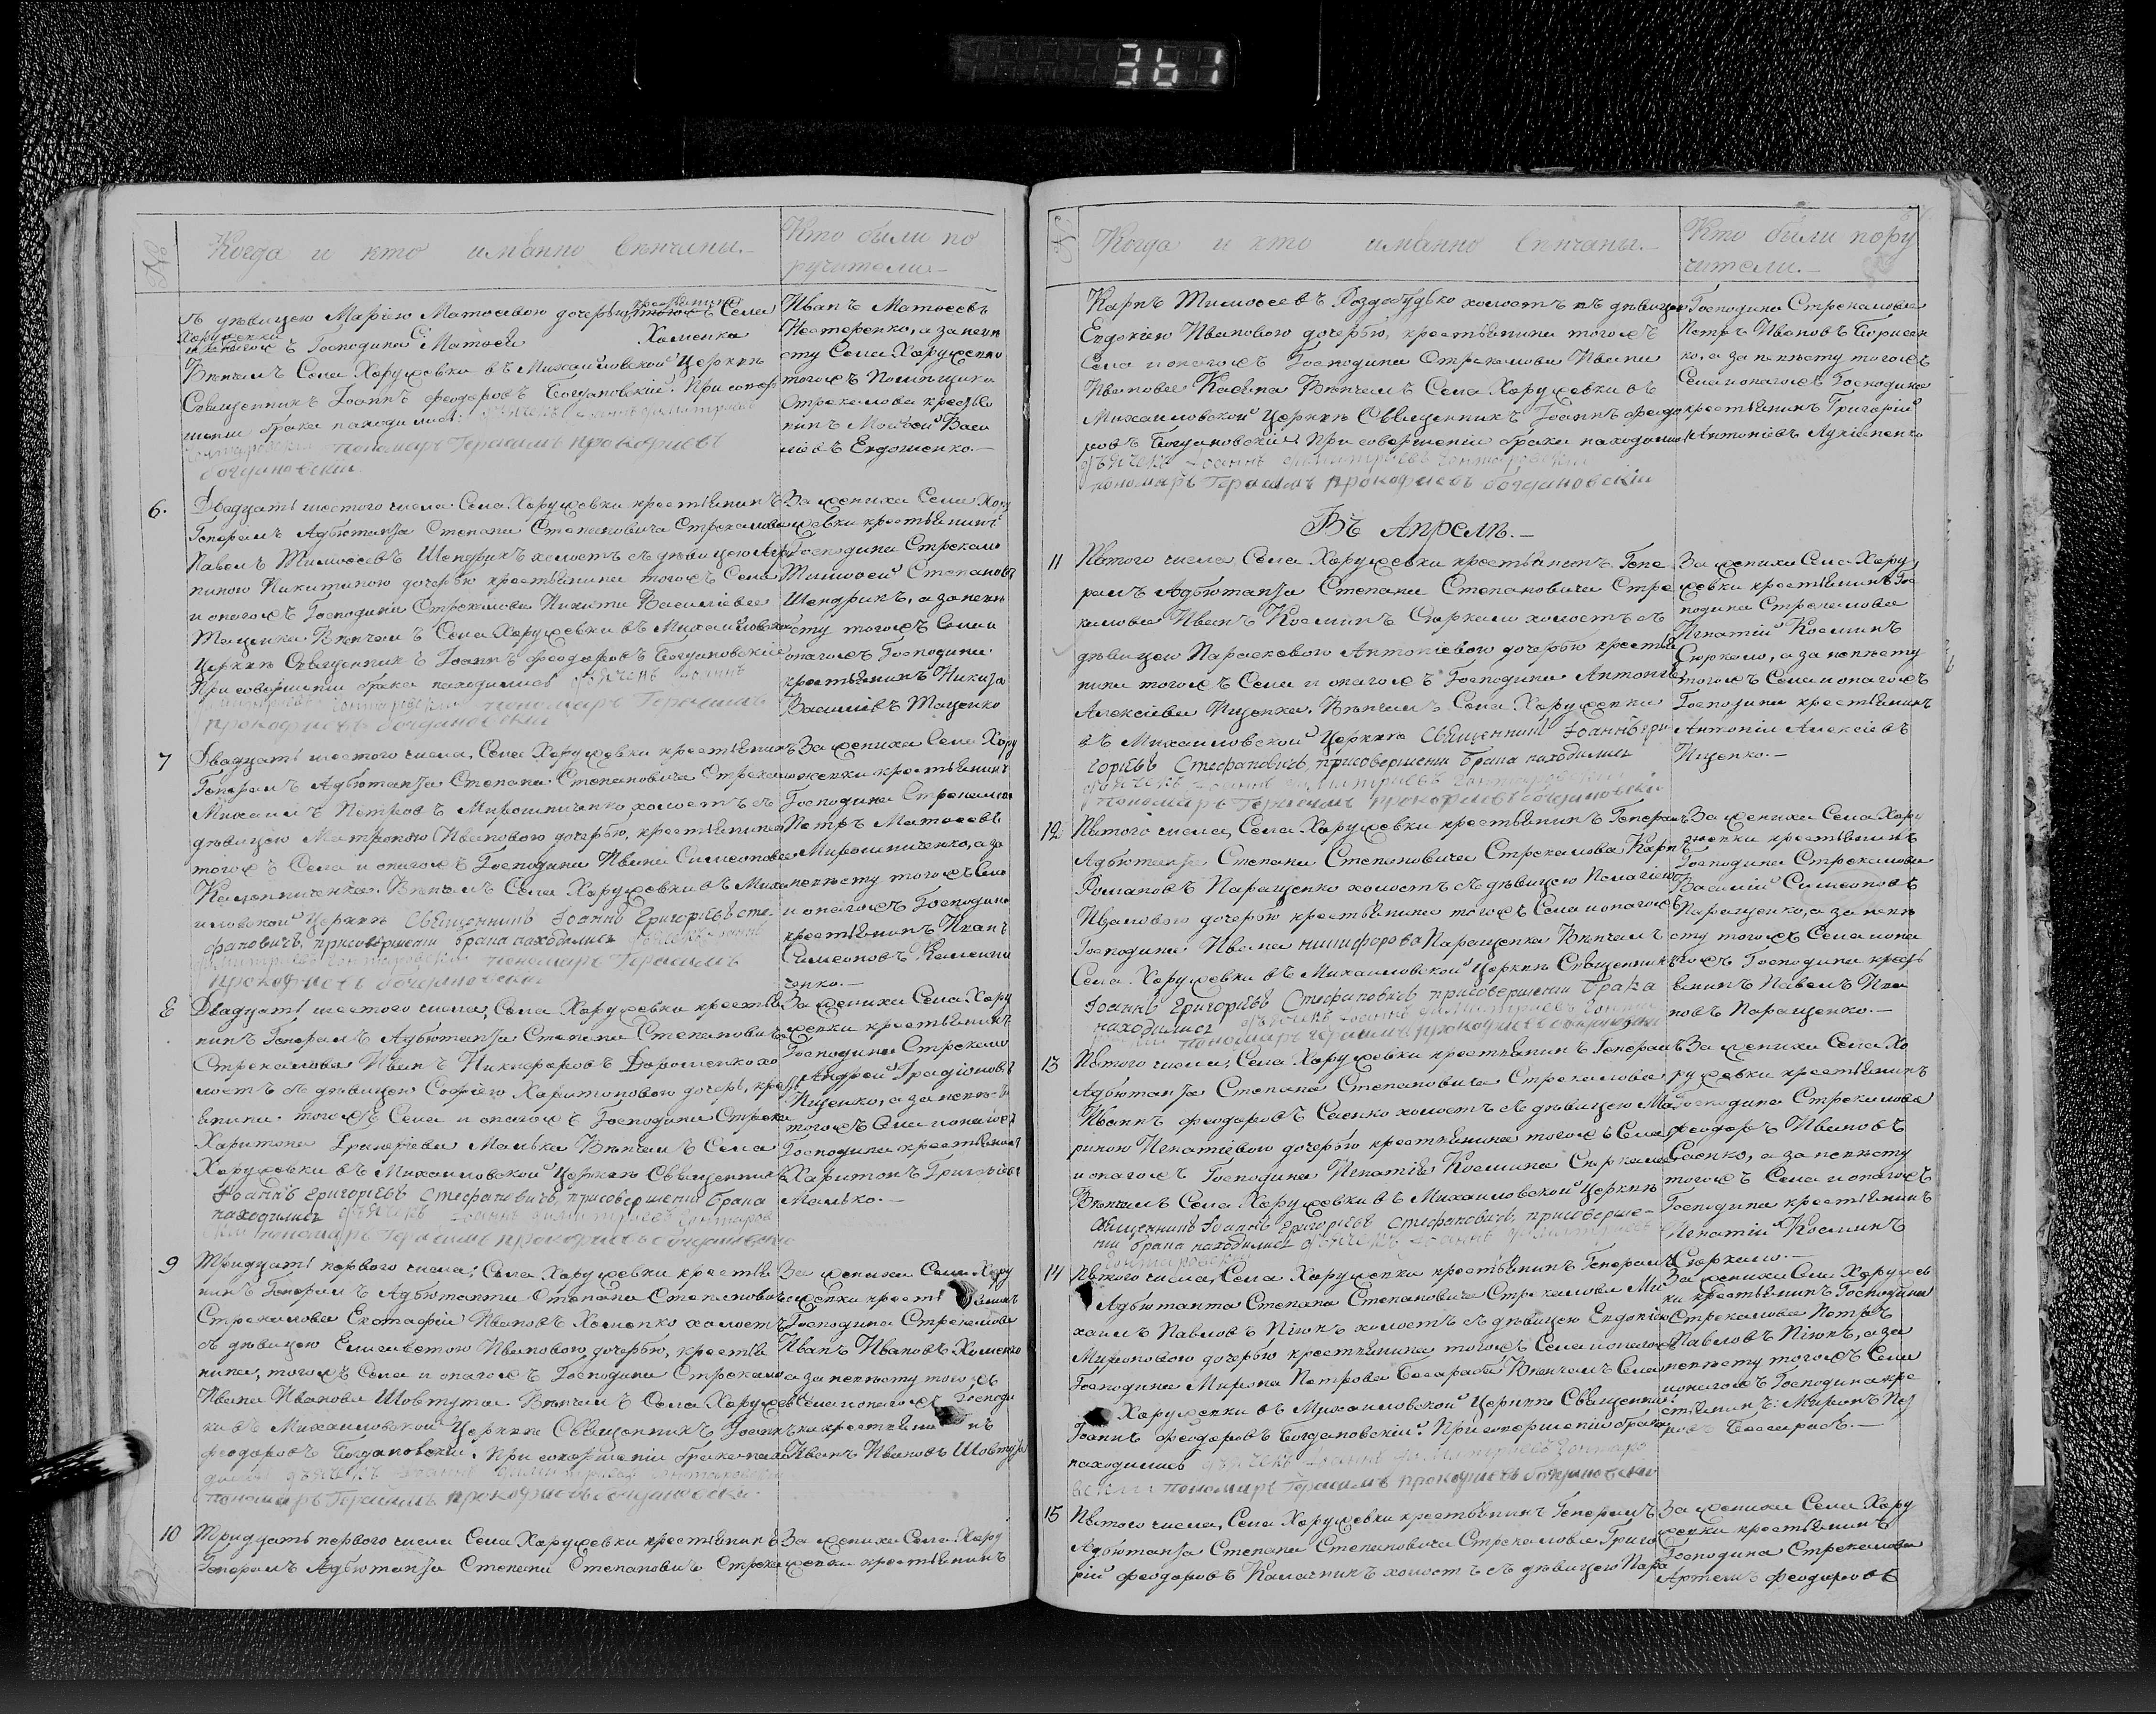 361
№
Когда и кто имѣнно вѣнчаны.-
Кто были по
ручители-
съ дѣвицею Маріею Матѳеевою дочерью крестьянина Села
Харужевки
Господина Матѳея Хоменка
Вѣнчалъ Села Харужевки въ Михайловской Церкви
Священникъ Іоаннъ Феодоровъ Богдановскій. При совер
шеніи брака находились
пономарь Герасимъ прокофиевъ
богдановскій
Иванъ Матѳеевъ
Нестеренко, а за невѣ
сту Села Харужевки
тогожъ Помѣщика
Стрекалова крестья
нинъ Моѵсей Васи
ліевъ Евдошенко.-
6.
Двадцать шестого числа Села Харужевки крестьянинъ
Генералъ Адъютанта Степана Степановича Стрекалова
Павелъ Тимоѳеевъ Шендрикъ холостъ съ дѣвицею
Никитиною дочерью крестьянина тогожъ Села
и оногожъ Господина Стрекалова Никиты Василіева
Таценка Вѣнчалъ Села Харужевки въ Михайловской
Церкви Священникъ Іоаннъ Феодоровъ Богдановскій
При совершеніи брака находились дьячекъ Іоаннъ
пономарь Герасимъ
прокофиевъ богдановскій
За жениха Села Хару
жевки крестьянинъ
Господина Стрекало
Тимоѳей Степановъ
Шендрикъ, а за невѣ
сту тогожъ Села и
оногожъ Господина
крестьянинъ Никита
Василіевъ Таценко
7
Двадцать шестого числа, Села Харужевки крестьянинъ
Генералъ Адъютанта Степана Степановича Стрекало
Михаилъ Петровъ Мирошниченко, холостъ съ
дѣвицею Матроною Ивановою дочерью, крестьянина
тогожъ Села и оногожъ Господина Ивана Симеонова
Каменниченка. Вѣнчалъ Села Харужевки въ Миха
иловской Церкви Священникъ Іоаннъ Григоріевъ Сте
фановичъ, при совершеніи брака находились дьячекъ Іоаннъ
пономарь Герасимъ
прокофиевъ богдановскій
За жениха Села Хару
жевки крестьянинъ
Господина Стрекалова
Петръ Матѳеевъ
Мирошниченко, а за
невѣсту тогожъ Села
и оногожъ Господина
крестьянинъ Иванъ
Симеоновъ Каменни
ченко.-
8
Двадцать шестого числа, Села Харужевки крестья
нинъ Генералъ Адъютанта Степана Степановича
Стрекалова Иванъ Никифоровъ Дорошенко хо
лостъ съ дѣвицею Софіею Харитоновою дочерь, крест
янина тогожъ Села и оногожъ Господина Стрека
Харитона Григоріева Малька Вѣнчалъ Села
Харужевки въ Михаиловской Церкви Священникъ
Іоаннъ Григоріевъ Стефановичъ, при совершеніи брака
находились дьячекъ Іоаннъ димитріевъ Гонтаров
скій пономарь Герасимъ прокофиевъ богдановскій
За жениха Села Хару
жевки крестьянинъ
Господина Стрекало
Андрей Градіоновъ
Ищенко, а за невѣ
тогожъ Села и оногожъ
Господина крестьянинъ
Харитонъ Григоріевъ
Малько.-
9
Тридцать первого числа; Села Харужевки крестья
нинъ Генералъ Адъютанта Степана Степановича
Стрекалова Евстафій Ивановъ Хоменко холостъ
съ дѣвицею Елисаветою Ивановою дочерью, крестья
нина, тогожъ Села и оногожъ Господина Стрекало
Ивана Иванова Шовтута. Вѣнчалъ Села Харужев
ки въ Михаиловской Церкви Священникъ Іоаннъ
Феодоровъ Богдановскій. При совершеніи брака нахо
дились дьячекъ Іоаннъ димитріевъ
пономарь Герасимъ прокофиевъ богдановскій.
За жениха Села Хару
жевки крестьянинъ
Господина Стрекалова
Иванъ Ивановъ Хоменко
а за невѣсту тогожъ
Села и оногожъ Господи
на крестьянинъ
Иванъ Ивановъ Шовтутъ
10
Тридцать первого числа Села Харужевки крестьянинъ
Генералъ Адъютанта Степана Степановичъ Стрека
За жениха Села Хару
жевки крестьянинъ
№
Когда и кто имѣнно вѣнчаны.-
Кто были пору
чители.-
Карпъ Тимоѳеевъ Роздобудько холостъ съ дѣвицею
Евдокіею Ивановою дочерью, крестьянина тогожъ
Села и оногожъ Господина Стрекалова Ивана
Иванова Касьяна Вѣнчалъ Села Харужевки въ
Михаиловской Церкви Священникъ Іоаннъ Феодо
ровъ Богдановскій При совершеніи брака находились
дьячекъ Іоаннъ димитріевъ Гонтаровскій
пономарь Герасимъ прокофиевъ богдановскій
Господина Стрекалова
Петръ Ивановъ Борисен
ко, а за невѣсту тогожъ
Села и оногожъ Господина
крестьянинъ Григорій
Антоніевъ Лукіяненко
Въ Апрелѣ.-
11
Пятого числа, Села Харужевки крестьянинъ Гене
ралъ Адъютанта Степана Степановича Стре
калова Иванъ Косминъ Сюркало холостъ съ
дѣвицею Параскевою Антоніевою дочерью крестья
нина тогожъ Села и оногожъ Господина Антонія
Алексіева Ищенка. Вѣнчалъ Села Харужевки
въ Михаиловской Церкви Священникъ Іоаннъ Гри
горіевъ Стефановичъ, при совершеніи брака находились
дьячекъ Іоаннъ димитріевъ Гонтаровскій
пономарь Герасимъ прокофиевъ богдановскій
За жениха Села Хару
жевки крестьянинъ Гос
подина Стрекалова
Игнатій Косминъ
Сюркало, а за невѣсту
тогожъ Села и оногожъ
Господина крестьянинъ
Антоній Алексіевъ
Ищенко.-
12
Пятого числа, Села Харужевки крестьянинъ Генералъ
Адъютанта Степана Степановича Стрекалова Карпъ
Романовъ Паращенко холостъ съ дѣвицею Пелагіею
Ивановою дочерью крестьянина тогожъ Села и оногожъ
Господина Ивана Никифорова Паращенка Вѣнчалъ
Села Харужевки въ Михаиловской Церкви Священникъ
Іоаннъ Григоріевъ Стефановичъ при совершеніи брака
находились дьячекъ Іоаннъ димитріевъ Гонтаро
пономарь Герасимъ прокофиевъ богдановскій
За жениха Села Хару
жевки крестьянинъ
Господина Стрекалова
Василій Симеоновъ
Паращенко, а за невѣ
сту тогожъ Села и оно
гожъ Господина кресть
янинъ Павелъ Ива
новъ Паращенко.-
13
Пятого числа; Села Харужевки крестьянинъ Генералъ
Адъютанта Степана Степановича Стрекалова
Иванъ Феодоровъ Саенко холостъ съ дѣвицею Ма
риною Игнатіевою дочерью крестьянина тогожъ Села
и оногожъ Господина Игнатія Космина Сюркала
Вѣнчалъ Села Харужевки въ Михаиловской Церкви
Священникъ Іоаннъ Григоріевъ Стефановичъ, при соверше-
ніи брака находились дьячекъ Іоаннъ димитріевъ
Гонтаровскій
За жениха Села Ха
ружевки крестьянинъ
Господина Стрекалова
Феодоръ Ивановъ
Саенко, а за невѣсту
тогожъ Села и оногожъ
Господина крестьянинъ
Игнатій Косминъ
Сюркало.-
14
Пятого числа, Села Харужевки крестьянинъ Генералъ
Адъютанта Степана Степановича Стрекалова Ми
хаилъ Павловъ Пгюкъ холостъ съ дѣвицею Евдокіею
Мироновою дочерью крестьянина тогожъ Села и оногожъ
Господина Мирона Петрова Бесараба Вѣнчалъ Села
Харужевки въ Михаиловской Церкви Священникъ
Іоаннъ Феодоровъ Богдановскій. При совершеніи брака
находились дьячекъ Іоаннъ димитріевъ Гонтаро
вскій пономарь Герасимъ прокофиевъ богдановскій
За жениха Села Харужев
ки крестьянинъ Господина
Стрекалова Петръ
Павловъ Пгюкъ, а за
невѣсту тогожъ Села
и оногожъ Господина кре
стьянинъ Миронъ Пет
ровъ Бесарабъ.-
15
Пятого числа, Села Харужевки крестьянинъ Генералъ
Адъютанта Степана Степановича Стрекалова Григо
рій Феодоровъ Калачникъ холостъ съ дѣвицею Пара
За жениха Села Хару
жевки крестьянинъ
Господина Стрекалова
Артемъ Феодоровъ